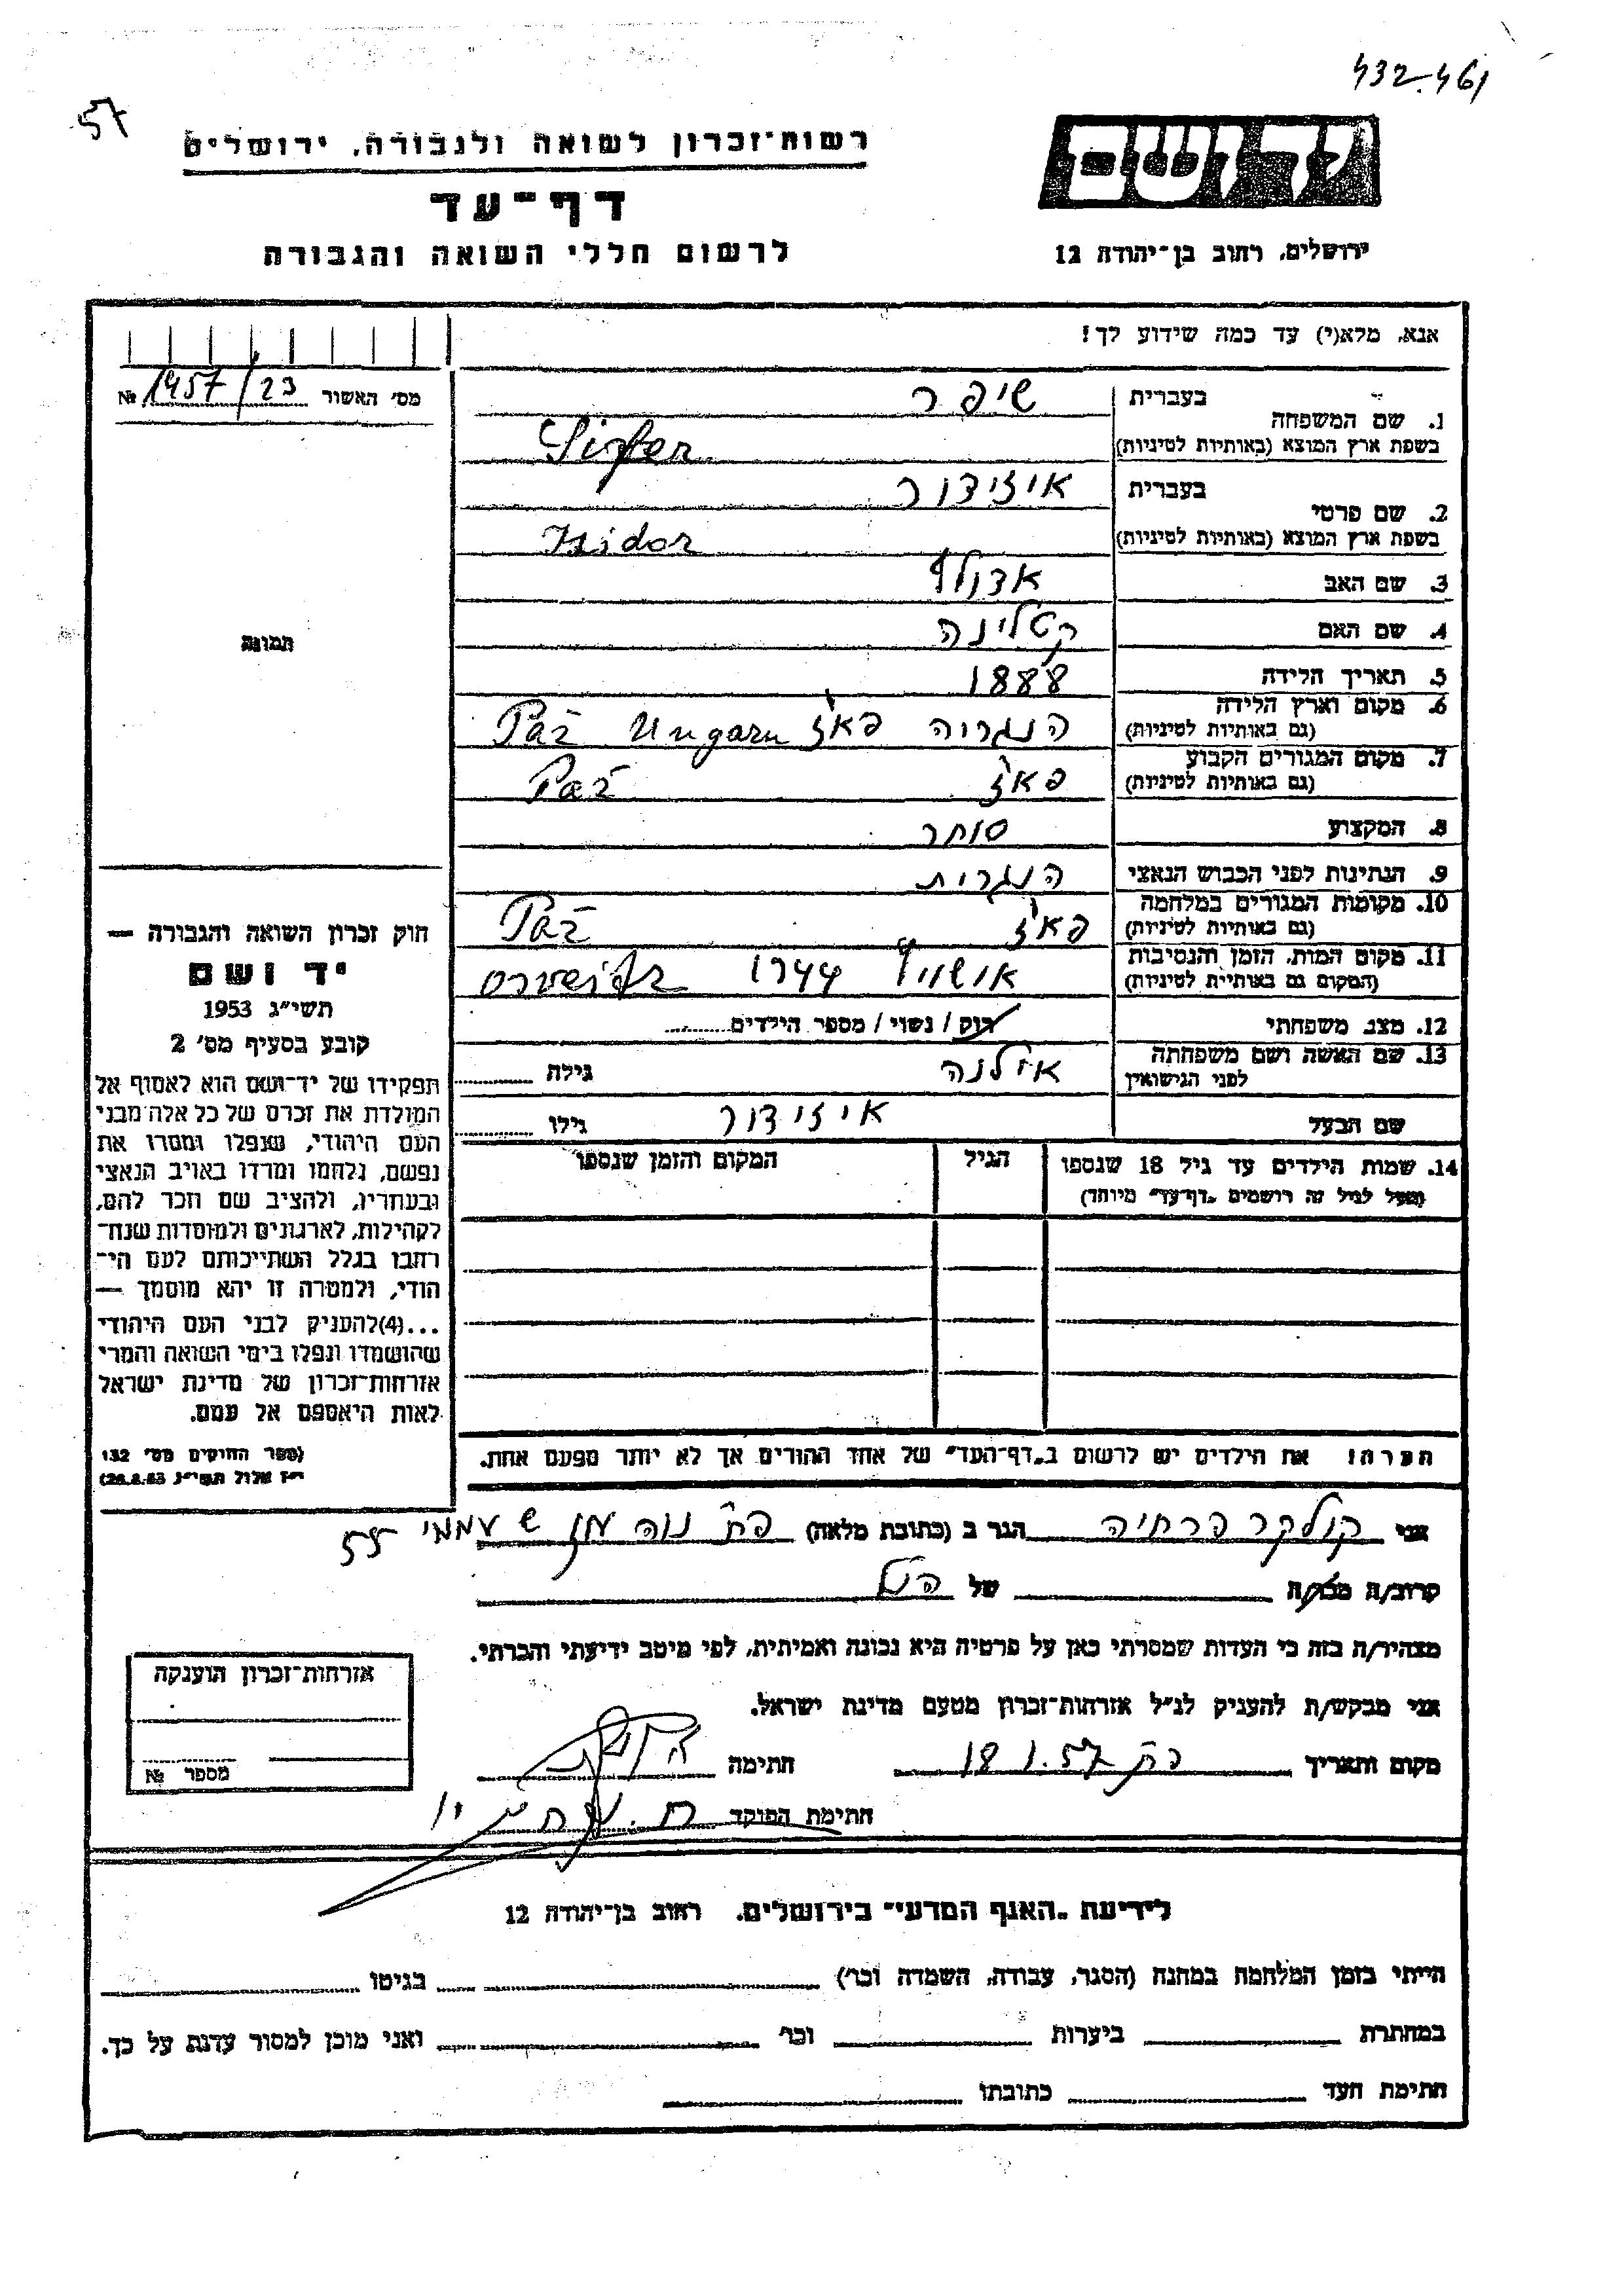 432.461
57
ידושם
רשות־זכרון לשואה ולגבורה, ירושלים
דף־עד
לרשום חללי השואה והגבורה
ירושלים, רחוב בן־יהודה 12
אנא, מלא(י) עד כמה שידוע לך!
מס׳ האשור 1457/23 №
1. שם המשפחה
בעברית שיפר
בשפת ארץ המוצא (באותיות לטיניות)
2. שם פרטי
בעברית איזידור
בשפת ארץ המוצא (באותיות לטיניות) Isidor
3. שם האב אדולף
4. שם האם קטלינה
5. תאריך הלידה 1888
6. מקום וארץ הלידה
(גם באותיות לטיניות) הנגריה פאז' Ungarn Paž
7. מקום המגורים הקבוע
(גם באותיות לטיניות) פאז' Paž
8. המקצוע סוחר
9. הנתינות לפני הכבוש הנאצי הנגרית
10. מקומות המגורים במלחמה
(גם באותיות לטיניות) פאז' Paž
11. מקום המות, הזמן והנסיבות
(המקום גם באותיות לטיניות) 1944
12. מצב משפחתי רוק / נשוי / מספר הילדים
13. שם האשה ושם משפחתה
לפני הנישואין אילנה גילה
שם הבעל איזידור גילו
14. שמות הילדים עד גיל 18 שנספו הגיל המקום והזמן שנספו
(מעל לגיל זה רושמים „דף־עד״ מיוחד)
תמונה
חוק זכרון השואה והגבורה —
יד ושם
תשי״ג 1953
קובע בסעיף מס׳ 2
תפקידו של יד־ושם הוא לאסוף אל
המולדת את זכרם של כל אלה מבני
העם היהודי, שנפלו ומסרו את
נפשם, נלחמו ומרדו באויב הנאצי
ובעוזריו, ולהציב שם וזכר להם,
לקהילות, לארגונים ולמוסדות שנח־
רחבו בגלל השתייכותם לעם הי־
הודי, ולמטרה זו יהא מוסמך —
...(4)להעניק לבני העם היהודי
שהושמדו ונפלו בימי השואה והמרי
אזרחות־זכרון של מדינת ישראל
לאות היאספם אל עמם.
(ספר החוקים מס׳ 132
י״ז אלול תשי״ג 28.8.53)
הערה! את הילדים יש לרשום ב„דף־העד״ של אחד ההורים אך לא יותר מפעם אחת.
אני קולקר פרחיה הגר ב (כתובת מלאה) פת נוה עממי 55
קרוב/ה מכר/ה של הנ"ל
מצהיר/ה בזה כי העדות שמסרתי כאן על פרטיה היא נכונה ואמיתית, לפי מיטב ידיעתי והכרתי.
אני מבקש/ת להעניק לנ״ל אזרחות־זכרון מטעם מדינת ישראל.
מקום ותאריך פת 18.1.57 חתימה
חתימת הפוקד
אזרחות־זכרון הוענקה
מספר №
לידיעת „האגף המדעי״ בירושלים, רחוב בן־יהודה 12
הייתי בזמן המלחמה במחנה (הסגר, עבודה, השמדה וכו׳) בגיטו
במחתרת ביערות וכו׳ ואני מוכן למסור עדות על כך.
חתימת העד כתובתו